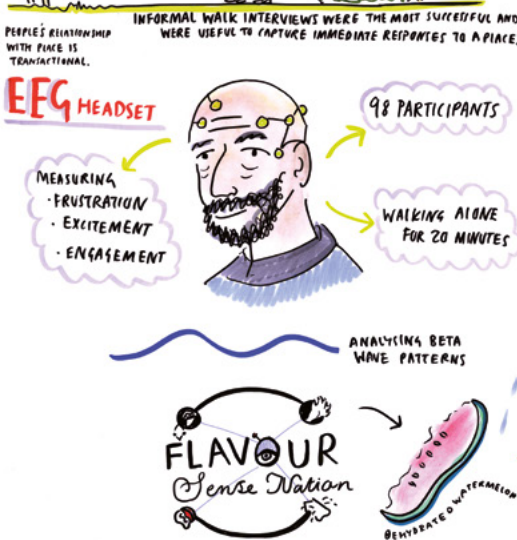 INFORMAL WALK INTERVIEWS WERE THE MOST SUCCESSFUL AND
WERE USEFUL TO CAPTURE IMMEDIATE RESPONSES TO A PLACE.
PEOPLE'S RELATIONSHIP
WITH PLACE IS
TRANSACTIONAL.
EEG HEADSET
98 PARTICIPANTS
MEASURING
· FRUSTRATION
· EXCITEMENT
· ENGAGEMENT
WALKING ALONE
FOR 20 MINUTES
ANALYSING BETA
WAVE PATTERNS
FLAVOUR
Sense Nation
DEHYDRATED WATERMELON